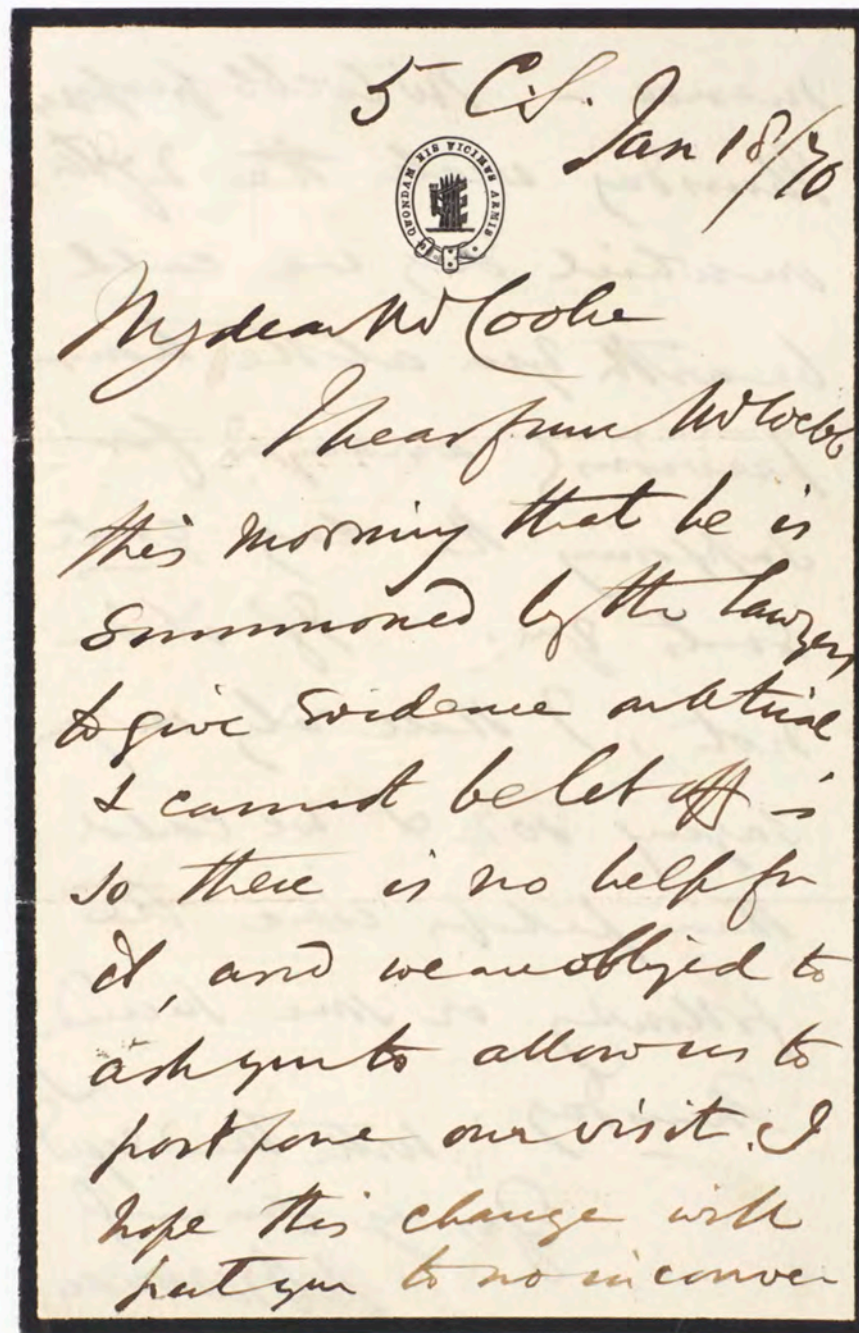 5 C.S.
Jan 18/70
QUONDAM HIS VICIMUS ARMIS
My dear Mr Cooke
I hear from Mr Webb
this morning that he is
summoned by the lawyers
to give evidence on
& cannot be let off –
so there is no help for
it, and we are obliged to
ask you to allow us to
postpone our visit. I
hope this change will
put you to no inconven